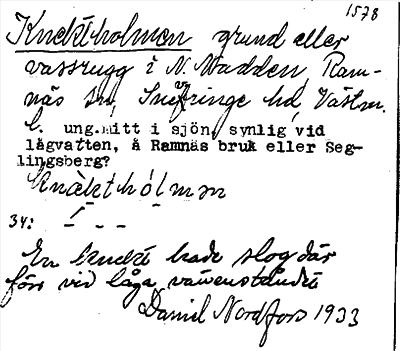 1578
Knektholmen grund eller
vassrugg i N. Nadden, Ram-
näs sn, Snevringe hd, Västm.
l. ung. mitt i sjön, synlig vid
lågvatten, å Ramnäs bruk eller Seg-
lingsberg?
34:
En knekt hade slog där
förr vid låga vattenståndet
Daniel Nordfors 1933